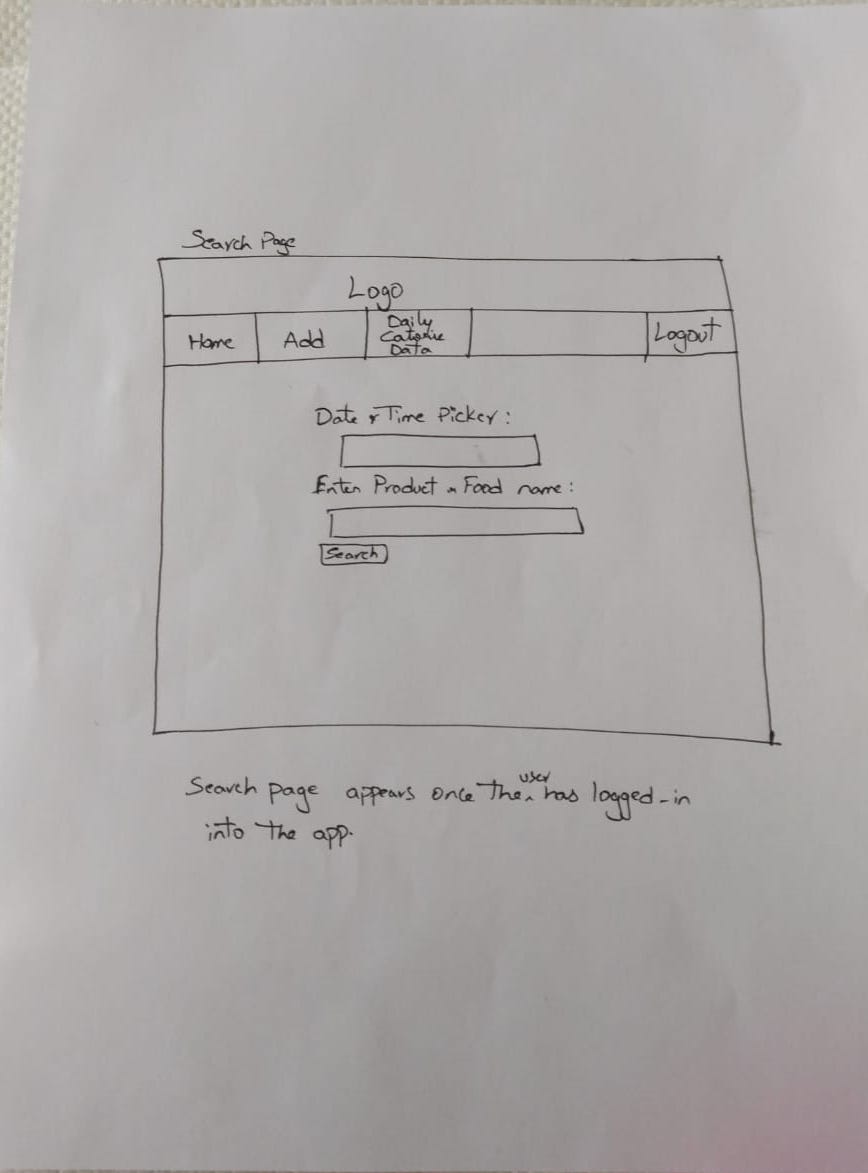 Search Page
Logo
Home
Add
Daily
Calorie
Data
Logout
Date & Time Picker :
Enter Product or Food name :
Search
Search page appears once the user has logged-in
into the app.